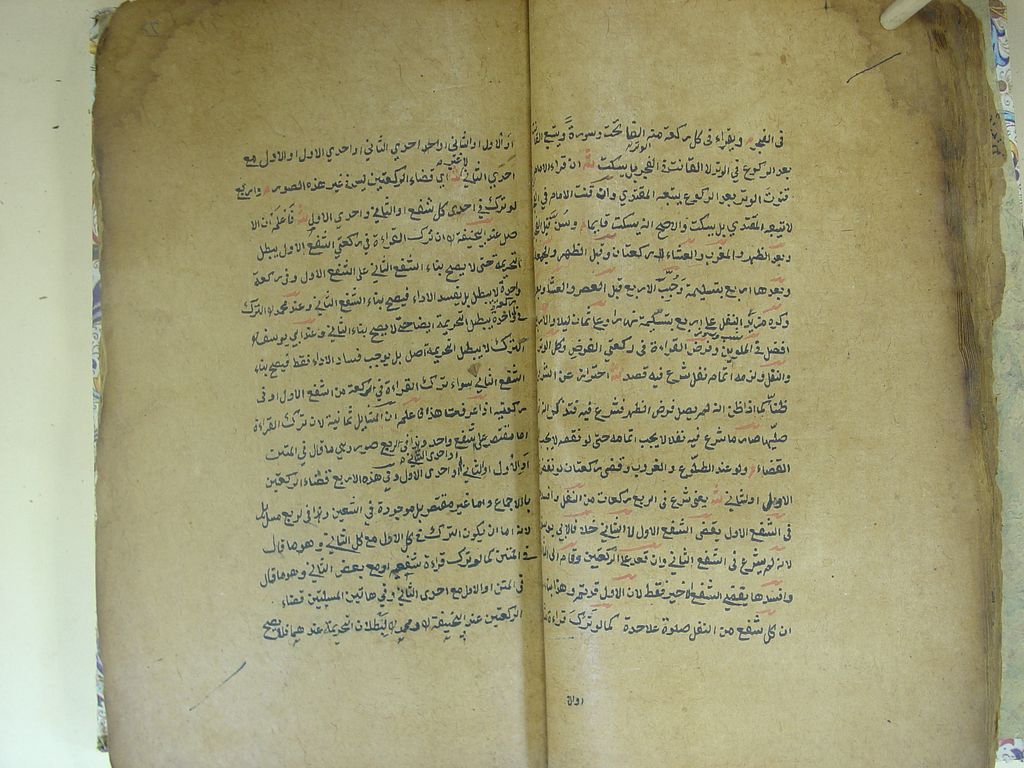 في الفجر ويقراء في كل ركعة من الفاتحة وسورة ويتبع
الوتر
بعد الركوع في الوتر لا القانت في الفجر بل يسكت ان قراء الامام
قنوت الوتر بعد الركوع يتبعه المقتدي وان قنت الامام في
لا يتبعه المقتدي بل يسكت والاصح انه يسكت قايما وسن قبل
وبعد الظهر والمغرب والعشاء ركعتان وقبل الظهر والجمعة
وبعدها اربع بتسليمة وحبب الاربع قبل العصر والعشاء
وكره مزيد النفل على اربع بتسليمة نهارا وعلى ثمان ليلا
افضل في الملوين وفرض القراءة في ركعتي الفرض وكل الوتر
والنفل ولزمه اتمام نفل شرع فيه قصدا احتراز عن
ظنا كما اذا ظن انه لم يصل فرض الظهر فشرع فيه فتذكر انه
صليها صار ما شرع فيه نفلا لا يجب اتمامه حتى لو نقضه لا يجب
القضاء ولو عند الطلوع والغروب وقضى ركعتان لو نقض
الاول او الثاني يعني شرع في اربع ركعات من النفل
في الشفع الاول يقضي الشفع الاول لا الثاني خلافا لابي يوسف
لانه لم يشرع في الشفع الثاني وان قعد على الركعتين وقام الى
وافسدها يقضي الشفع الاخير فقط لان الاول قد تم وهذا
ان كل شفع من النفل صلوة علاحدة كما لو ترك قراءة
او الاول او الثاني او احدي الثاني او احدي الاول او الاول مع
احدي الثاني لا غير اي قضاء الركعتين ليس في غير هذه الصور واربع
لو ترك في احدي كل شفع او الثاني واحدي الاول فاعلم ان الا
صل عند ابي حنيفة ان ترك القراءة في ركعتي الشفع الاول يبطل
التحريمة حتى لا يصح بناء الشفع الثاني على الشفع الاول وفي ركعة
واحدة لا يبطل بل يفسد الاداء فيصح بناء الشفع الثاني وعند محمد الترك
في ركعة واحدة يبطل التحريمة ايضا حتى لا يصح بناء الثاني وعند ابي يوسف
الترك لا يبطل التحريمة اصلا بل يوجب فساد الاداء فقط فيصح بناء
الشفع الثاني سواء ترك القراءة في ركعة من الشفع الاول او في
ركعتيه اذا عرفت هذا فاعلم ان المسايل ثمانية لان ترك القراءة
اما مقتصر على شفع واحد وهذا في اربع صور وهي ما قال في المتن
او الاول او الثاني او احدي الثاني او احدي الاول وفي هذه الاربع قضاء الركعتين
بالاجماع واما غير مقتصر بل موجودة في الشفعين وهذا في اربع مسايل
لانه اما ان يكون الترك في كل الاول مع كل الثاني وهو ما قال
في المتن كما لو ترك قراءة شفعيه او مع بعض الثاني وهو ما قال
في المتن او الاول مع احدي الثاني وفي هاتين المسيلتين قضاء
الركعتين عند ابي حنيفة ومحمد لبطلان التحريمة عندهما فلا يصح